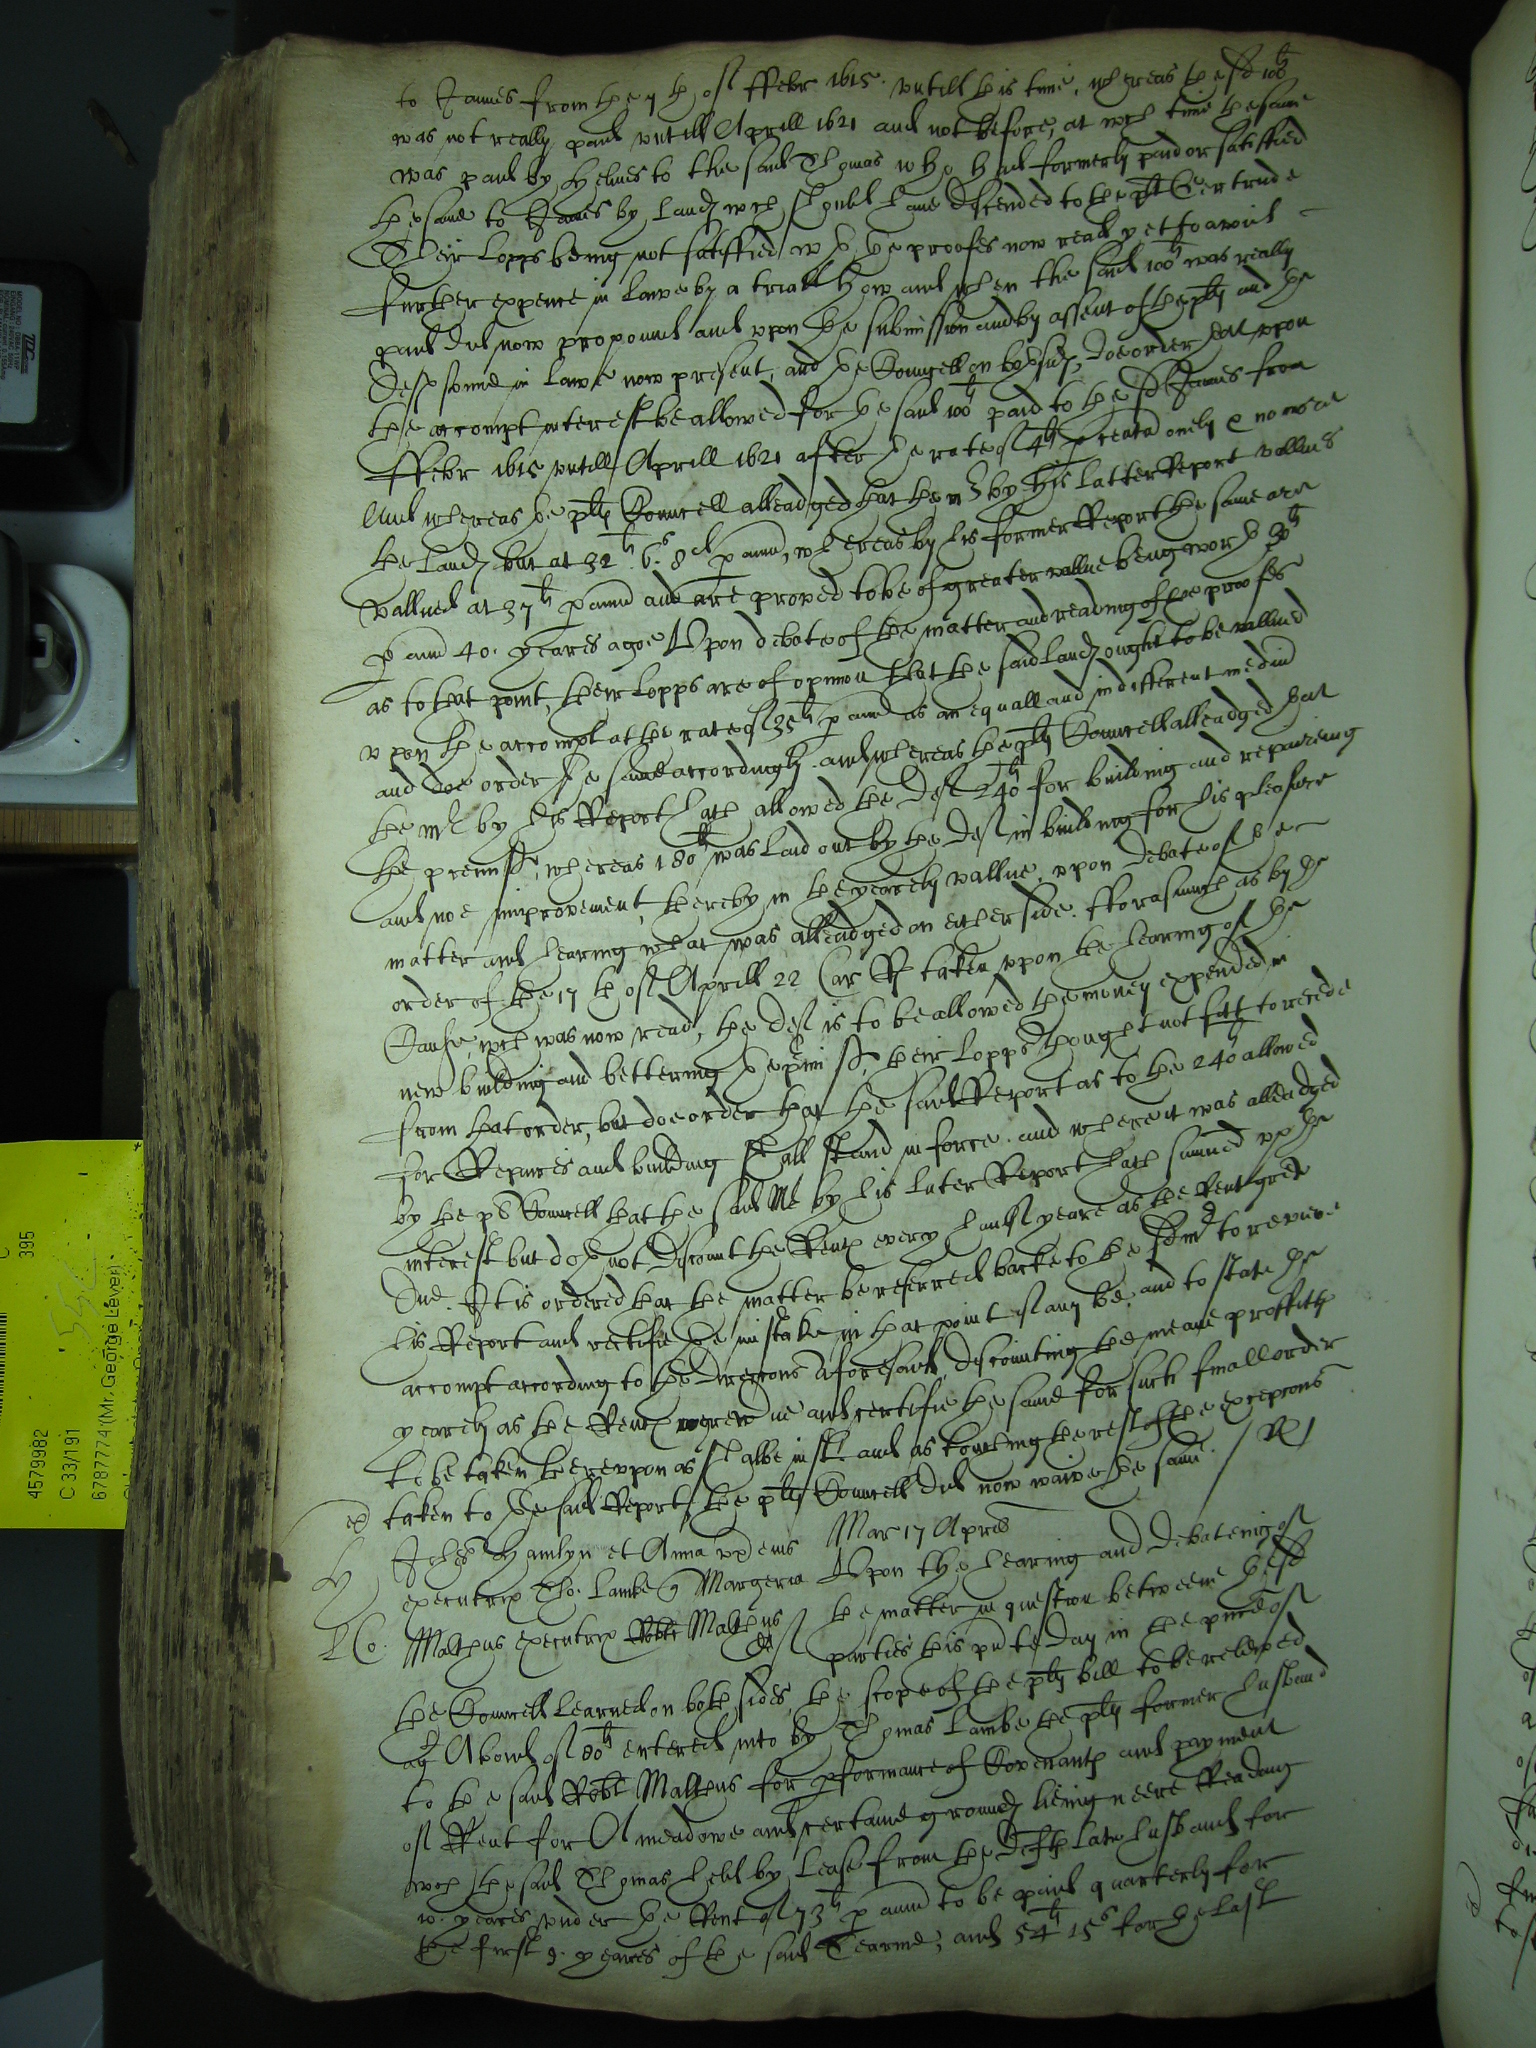 to James from the 7th of ffebr 1615. untill this time, whereas the sd 100li
was not really paid untill Aprill 1621 and not before, at wch time the same
was paid by Helmes to the said Thomas who had formerly paid or satisfied
the same to James by Landes wch should have discended to the plt Gertrude
Their Lopps being not satisfied wth the proofes now read yet to avoid
further expence in Lawe by a triall how and when the said 100li was really
paid did now propound and upon the submission and by assent of the plts and the
Deft found in Lawe now present, and the Councell on both sides, doe order that upon
the accompt interest be allowed for the said 100li paid to the sd James from
ffebr 1615 untill Aprill 1621 after the rate of 4li p centu onely & no more
And whereas the plts Councell alleadged that the Mr by his latter Report vallues
the Landes but at 32li 6s 8d p annu, whereas by his former Report the same are
vallued at 37li p annu and are proved to be of greater vallue being worth 30li
p annu 40. yeares agoe Upon debate of the matter and reading of the proofes
as to that point, their Lopps are of opinion that the said Landes ought to be vallued
upon the accompt at the rate of 35li p annu as an equall and indifferent mediu
and doe order the same accordingly. and whereas the plts Councell alleadged that
the Mr by his Report hath allowed the Deft 240li for building and repaireing
the premisses, whereas 180li was laid out by the Deft in building for his pleasure
and noe improvement thereby in the yearely vallue, upon debate of the
matter and hearing what was alleadged on either side. fforasmuch as by the
order of the 17th of Aprill 22 Car R taken upon the hearing of the
Cause, wch was now read, the deft is to be allowed the money expended in
new building and bettering the pmisses, their Lopps thought not fitt to recede
from that order, but doe order that the said Report as to the 240li allowed
for Repaires and building shall stand in force. and where it was alleadged
by the pts Councell that the said Mr by his later Report hath summed up the
interest but doth not discount the Rents every halfe yeare as the Rent grew
due. It is ordered that the matter be referred backe to the sd Mr to review
his Report and rectifie the mistake in that point if any be, and to state the
accompt according to the direccons aforesaid, discounting the meane proffitts
yearely as the Rents grew due and certifie the same for such finall order
to be taken thereupon as shalbe iust. and as touching the rest of the excepcons
taken to the said Report, the plts Councell did now waive the same. / R /
Johes Hamlyn et Anna ux eius Mar 17 Apris
executrix Tho: Lambe Margeria Upon the hearing and debateing of
Malthus executrix Robti Malthus deft the matter in question betweene the sd
parties this pnte day in the pnce of
the Councell learned on both sides, the scope of the plts bill to be releived
agt A bond of 80li entered into by Thomas Lambe the plts former husband
to the said Robt Malthus for pformance of Covenants and payment
of Rent for A meadowe and certaine grounds lieing neere Reading
wch the said Thomas held by Lease from the Defts late husband for
10. yeares under the Rent of 73li p annu to be paid quarterly for
the first 9. yeares of the said Tearme, and 54li 15s for the last
4579982
C 33/191
6787774 (Mr. George Lever)
395